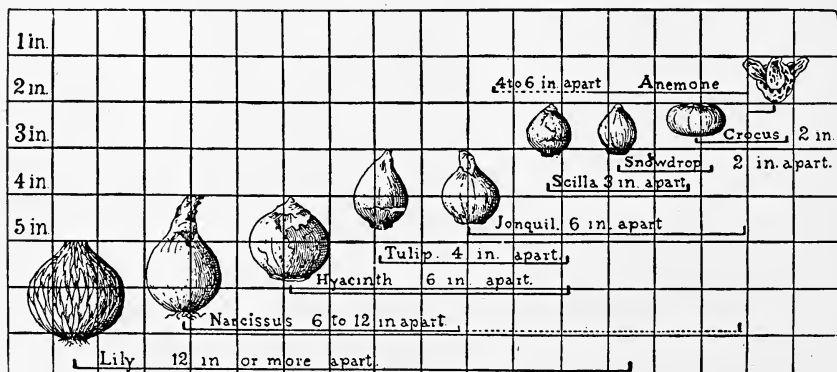 1 in.
2 in.
4 to 6 in. apart Anemone
3 in.
Crocus 2 in.
Snowdrop 2 in. apart.
4 in
Scilla 3 in. apart
5 in.
Jonquil. 6 in. apart
Tulip. 4 in. apart.
Hyacinth 6 in. apart.
Narcissus 6 to 12 in apart.
Lily 12 in or more apart.